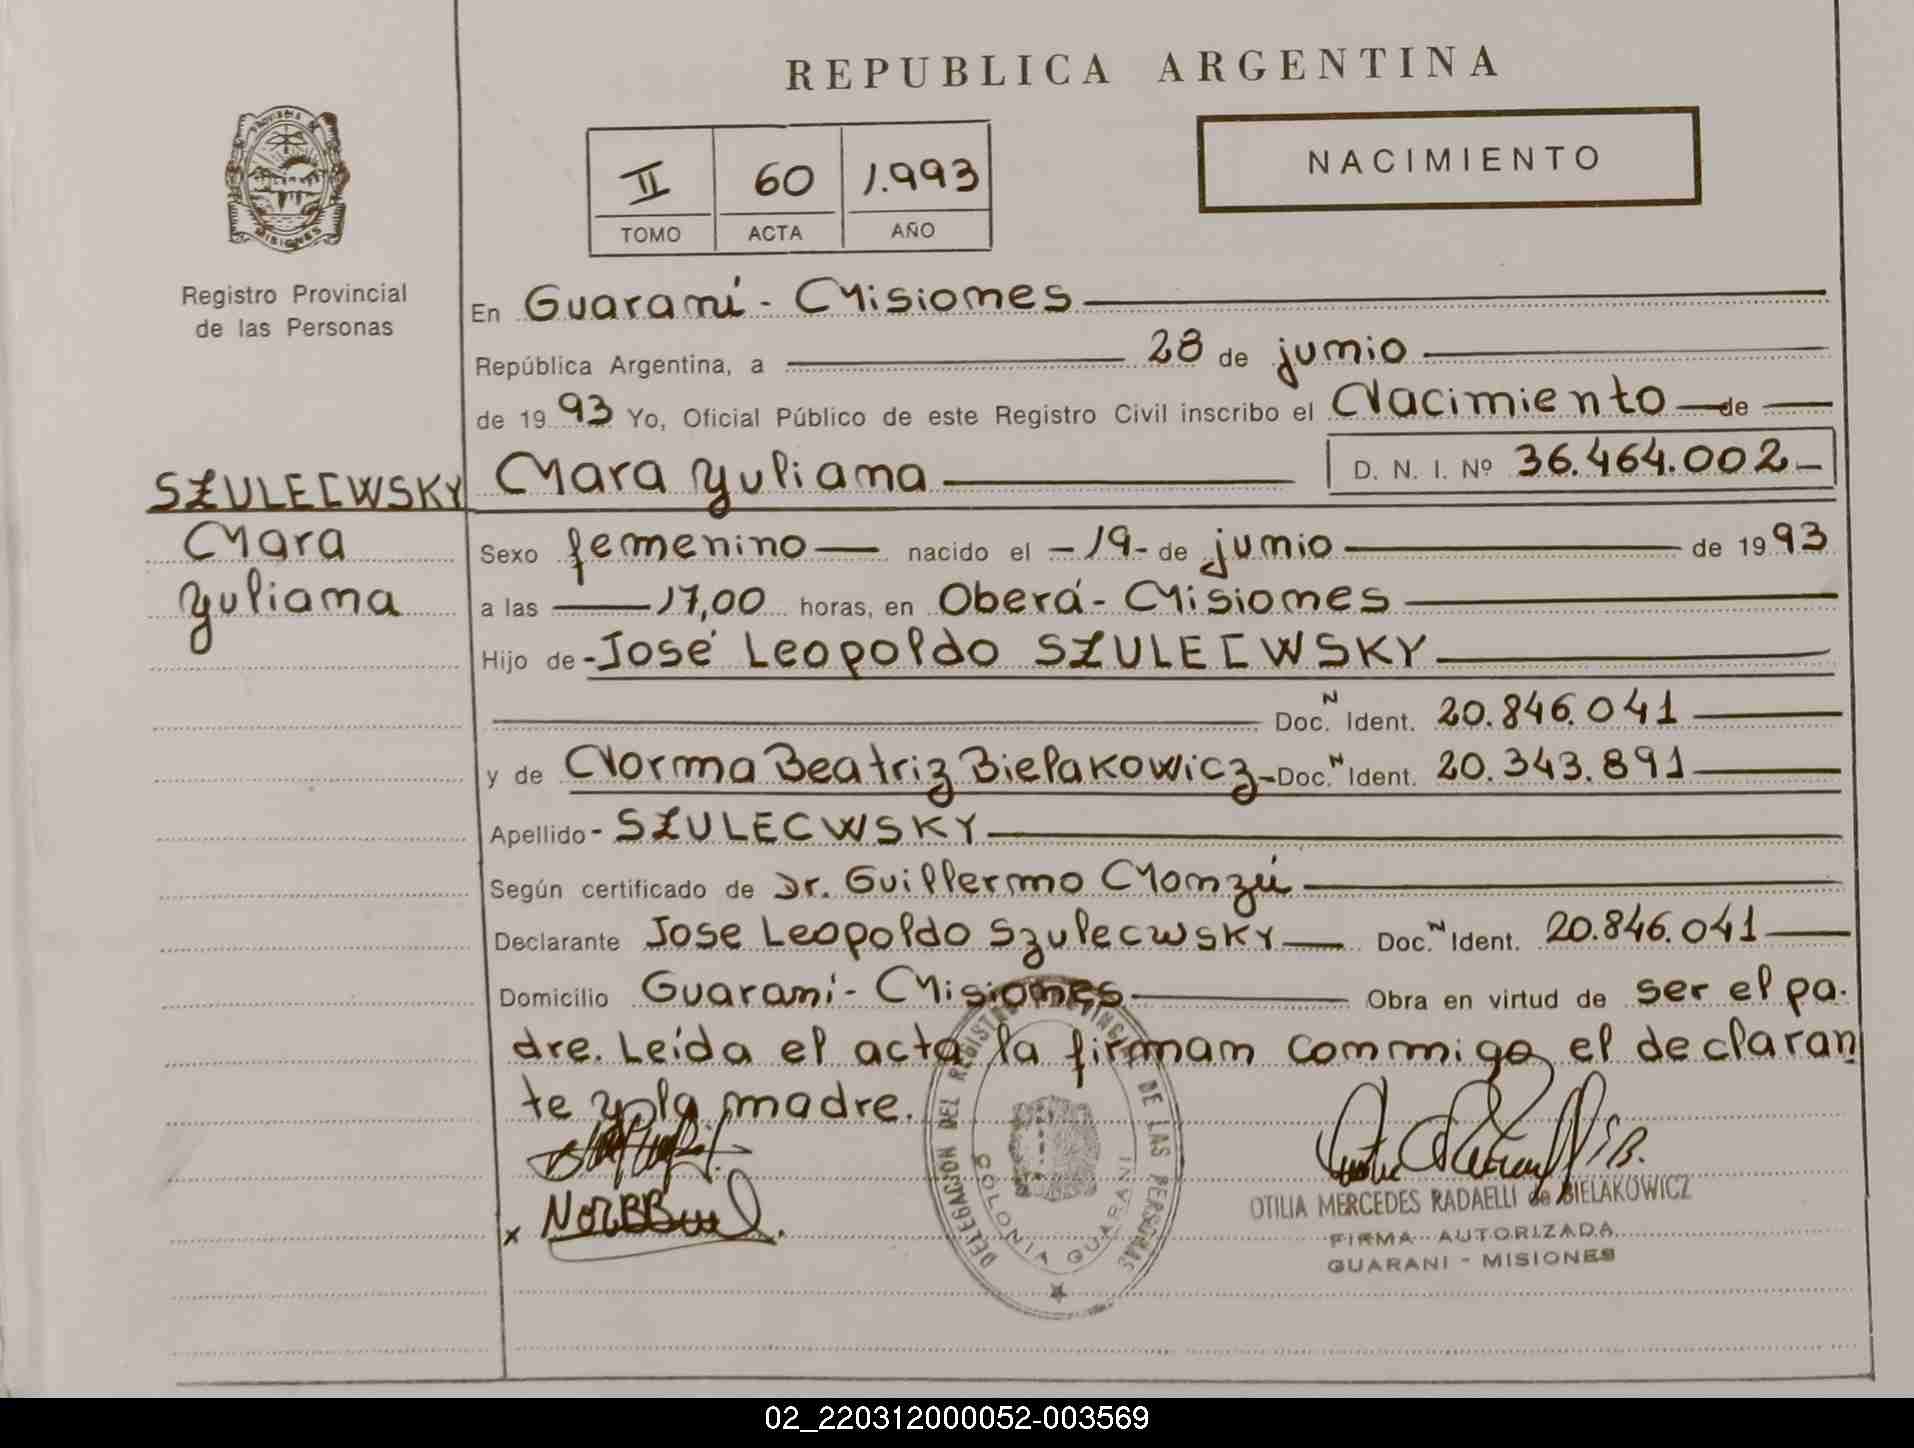 REPUBLICA ARGENTINA
PROVINCIA DE
MISIONES
Registro Provincial
de las Personas
II 60 1.993
TOMO ACTA AÑO
NACIMIENTO
En Guaraní - Misiones
República Argentina, a 28 de junio
de 19 93 Yo, Oficial Público de este Registro Civil inscribo el Nacimiento de
SZULECWSKY
Mara
Yuliana
Mara Yuliana D. N. I. Nº 36.464.002
Sexo femenino nacido el -19- de junio de 19 93
a las 17,00 horas, en Oberá - Misiones
Hijo de - José Leopoldo SZULECWSKY
Doc. N Ident. 20.846.041
y de Norma Beatriz Bielakowicz - Doc. N Ident. 20.343.891
Apellido - SZULECWSKY
Según certificado de Dr. Guillermo Monzú
Declarante Jose Leopoldo Szulecwsky Doc. N Ident. 20.846.041
Domicilio Guaraní - Misiones Obra en virtud de ser el pa-
dre. Leída el acta la firman conmigo el declaran
te y la madre.
DELEGACION DEL REGISTRO PROVINCIAL DE LAS PERSONAS
COLONIA GUARANI
OTILIA MERCEDES RADAELLI de BIELAKOWICZ
FIRMA AUTORIZADA
GUARANI - MISIONES
02_220312000052-003569